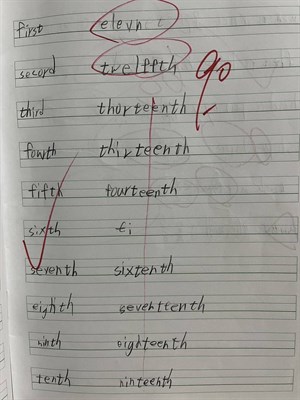 first elevn
secord twelffth 90
third thorteenth
fowth thirteenth
fifth fourteenth
sixth fi
seventh sixtenth
eighth seventteenth
ninth eighteenth
tenth ninteenth